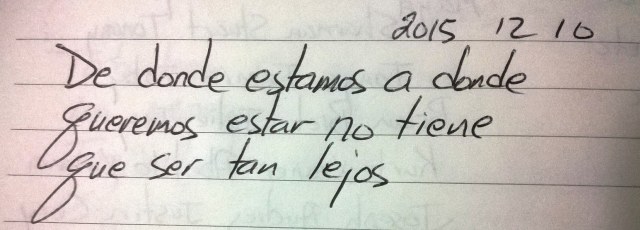 2015 12 10
De donde estamos a donde
queremos estar no tiene
que ser tan lejos